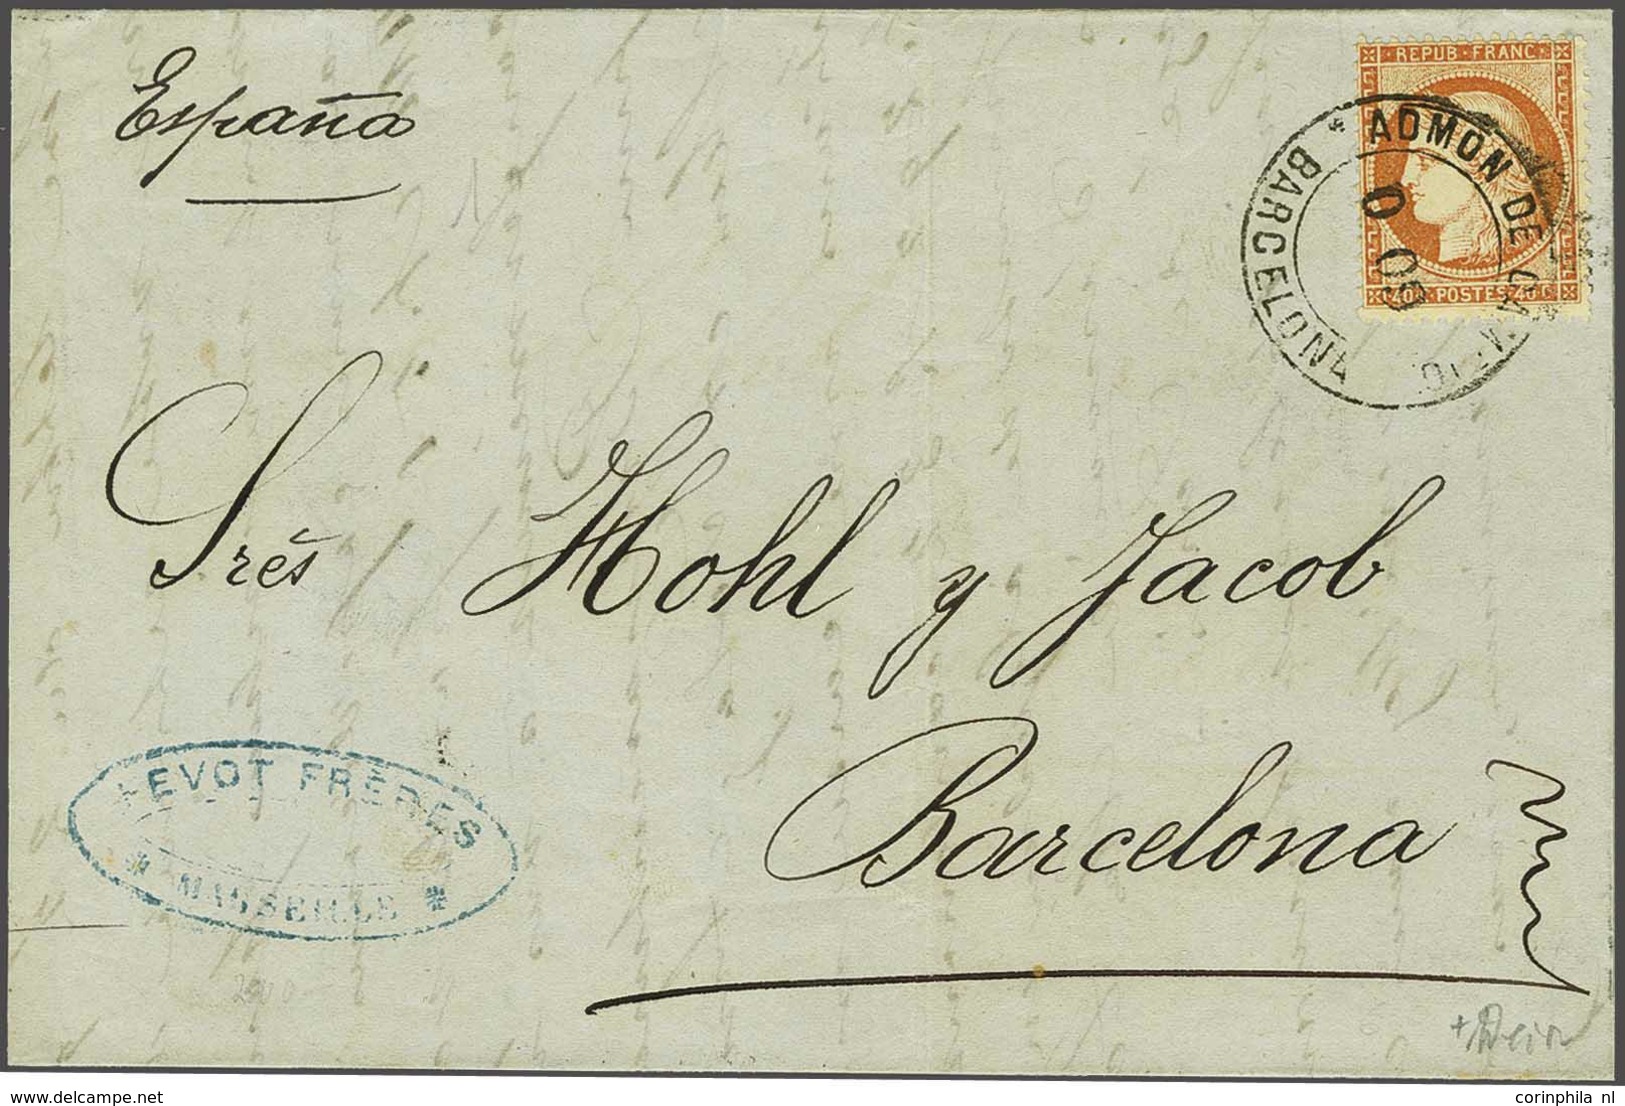 España
REPUB·FRANC
40 POSTES 40 C
* ADMON DE
BARCELONA
Srēs Hohl y Jacob
Barcelona
EVOT FRÈRES
* MARSEILLE *
2000
www.delcampe.net
corinphila nl